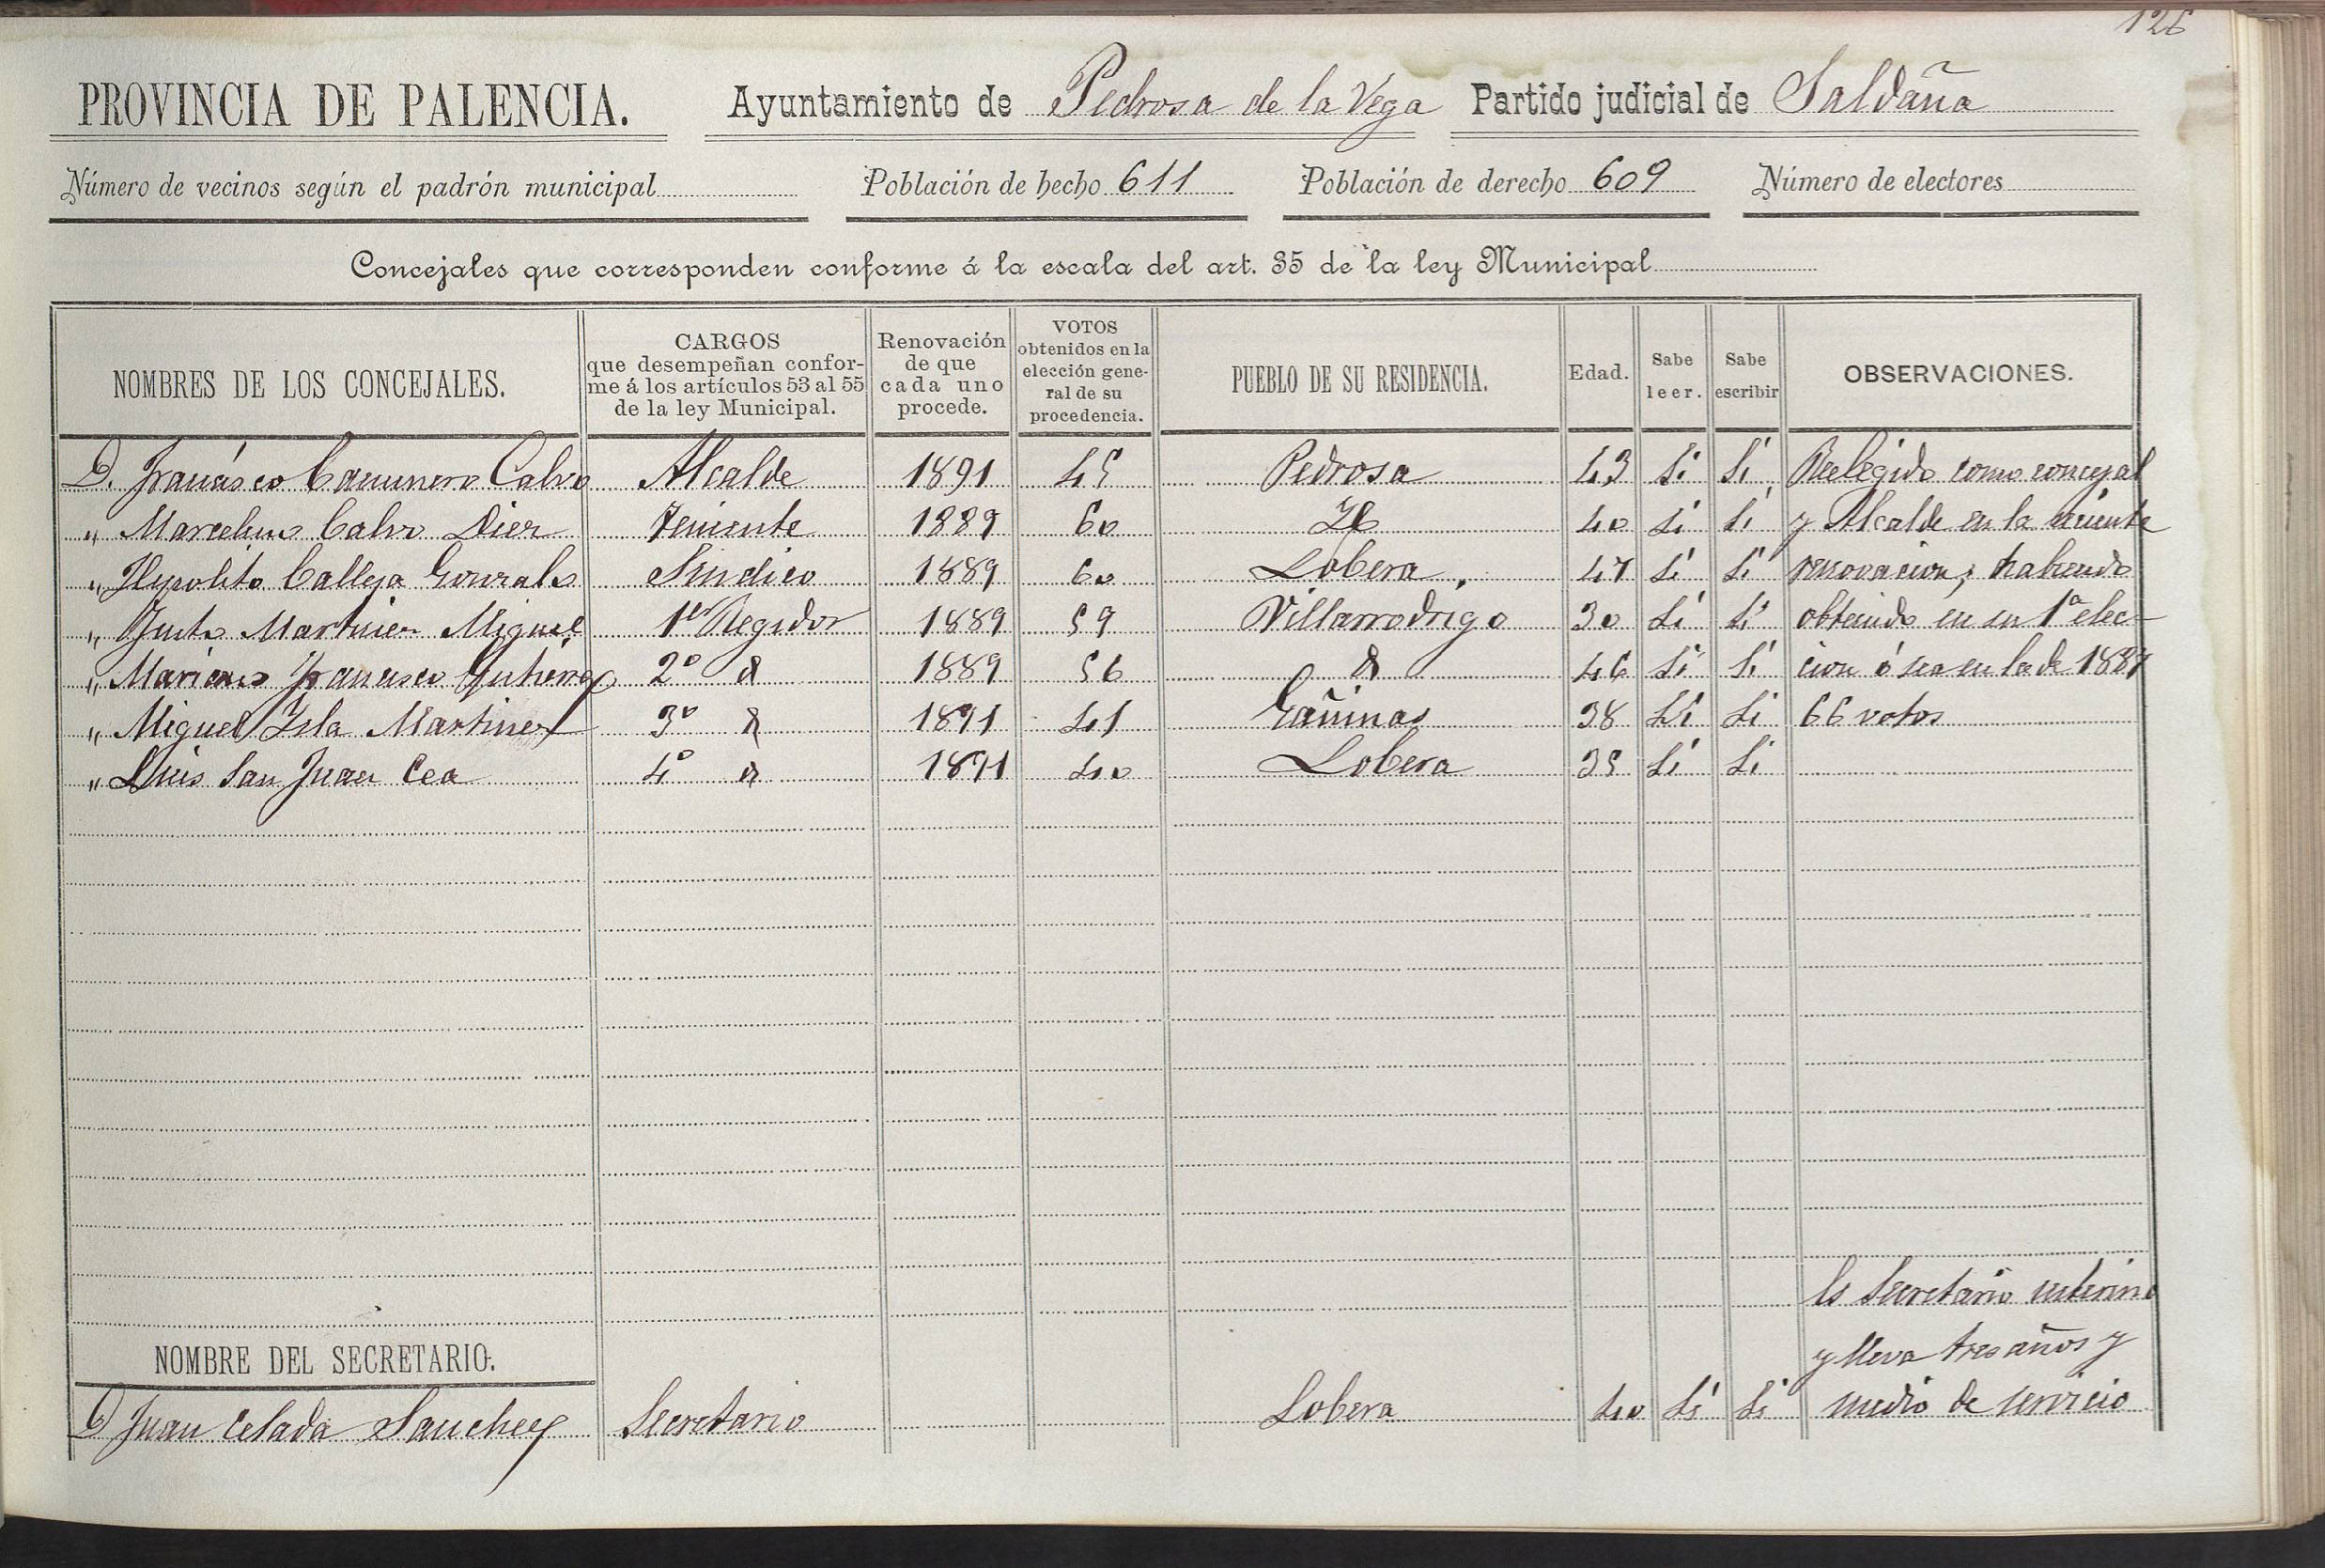 126
PROVINCIA DE PALENCIA. Ayuntamiento de Pedrosa de la Vega Partido judicial de Saldaña
Número de vecinos según el padrón municipal Población de hecho 611 Población de derecho 609 Número de electores
Concejales que corresponden conforme á la escala del art. 35 de la ley Municipal
NOMBRES DE LOS CONCEJALES.
CARGOS
que desempeñan confor-
me á los artículos 53 al 55
de la ley Municipal.
Renovación
de que
cada uno
procede.
VOTOS
obtenidos en la
elección gene-
ral de su
procedencia.
PUEBLO DE SU RESIDENCIA.
Edad.
Sabe
leer.
Sabe
escribir
OBSERVACIONES.
D. Francisco Caminero Calvo Alcalde 1891 45 Pedrosa 43 Si Si Reelegido como concejal
" Marcelino Calvo Diez Teniente 1889 60 Id 40 Si Si y Alcalde en la
" Hypolito Calleja Gonzalo Sindico 1889 60 Lobera 47 Si Si renovacion, habiendo
" Justo Martinez Miguel 1er Regidor 1889 59 Villarrodrigo 30 Si Si obtenido en su 1ª elec-
" Mariano Francisco Gutierrez 2º d 1889 56 d 46 Si Si cion ó sea en la de 1887
" Miguel Isla Martinez 3º d 1891 41 Gañinas 38 Si Si 66 votos
" Luis San Juan Cea 4º d 1891 40 Lobera 35 Si Si
Es Secretario interino
y lleva tres años y
NOMBRE DEL SECRETARIO.
D Juan Celada Sanchez Secretario Lobera 40 Si Si medio de servicio